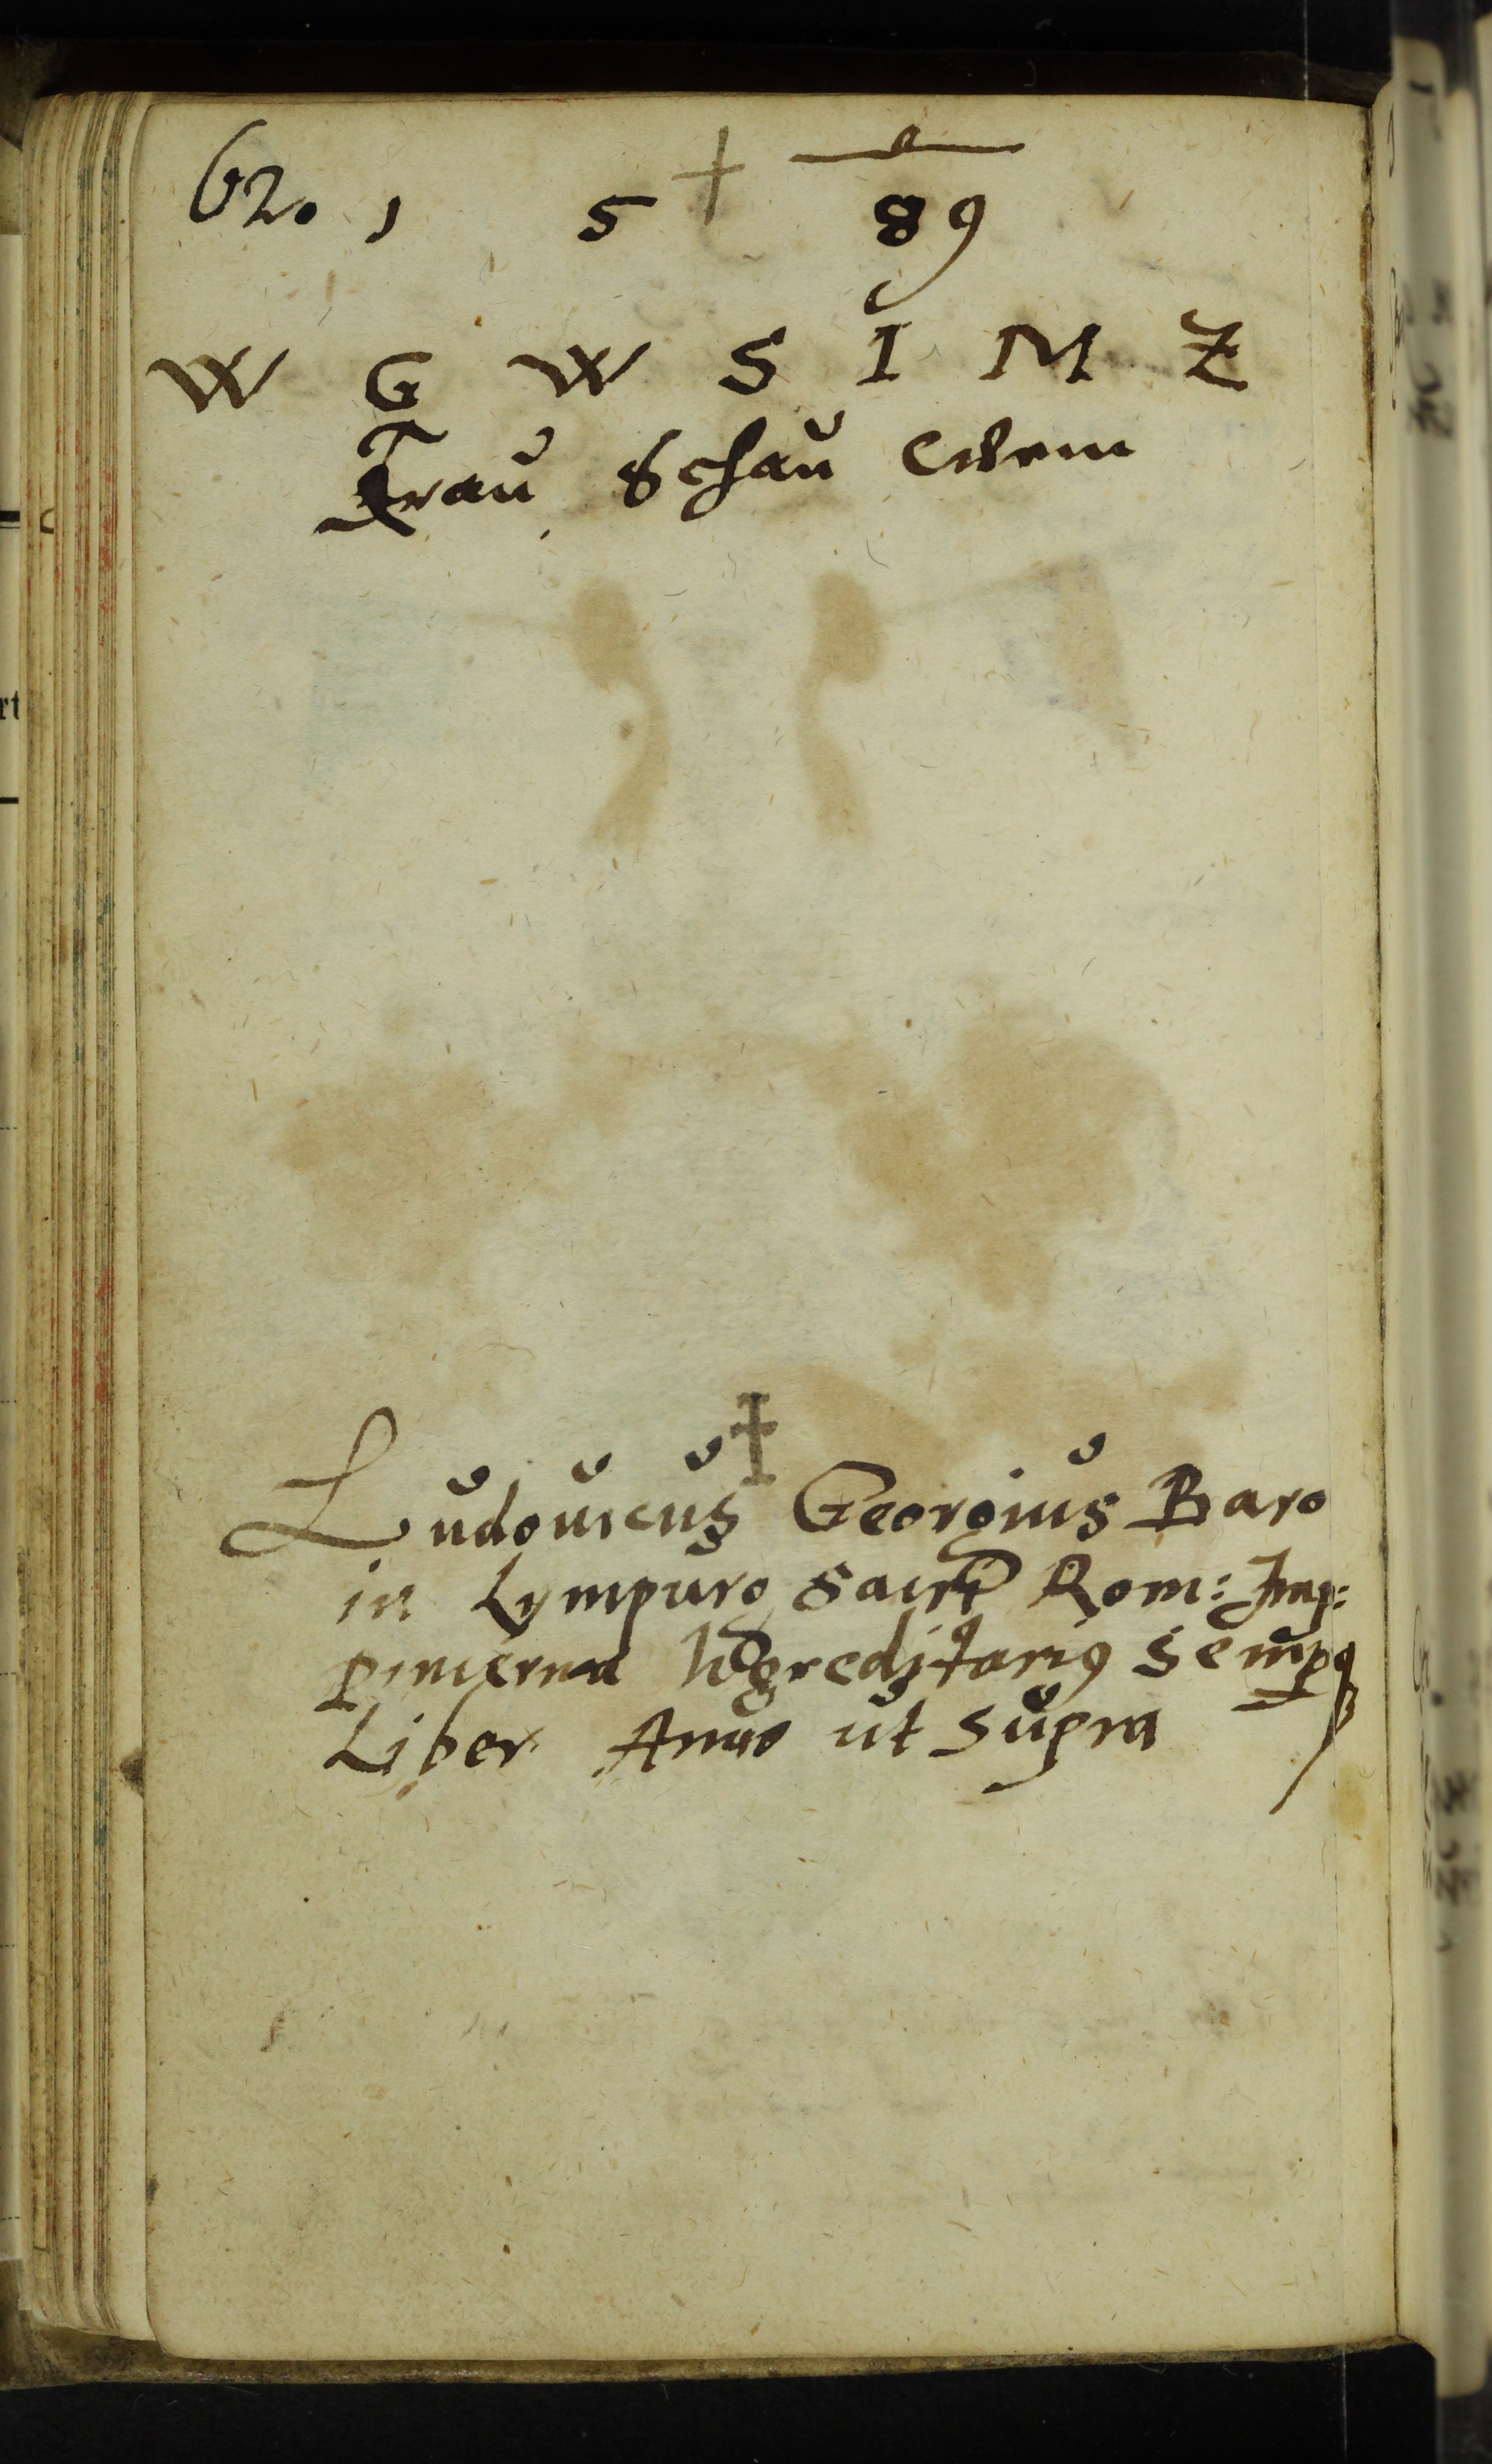 62. 1 5 89
W G W S I M Z
Trau Schau Wem
Ludouicus Georgius Baro
in Lympurg Sacri Rom: Imp:
Pincerna Hereditarius Semperq
Liber Anno ut Supra